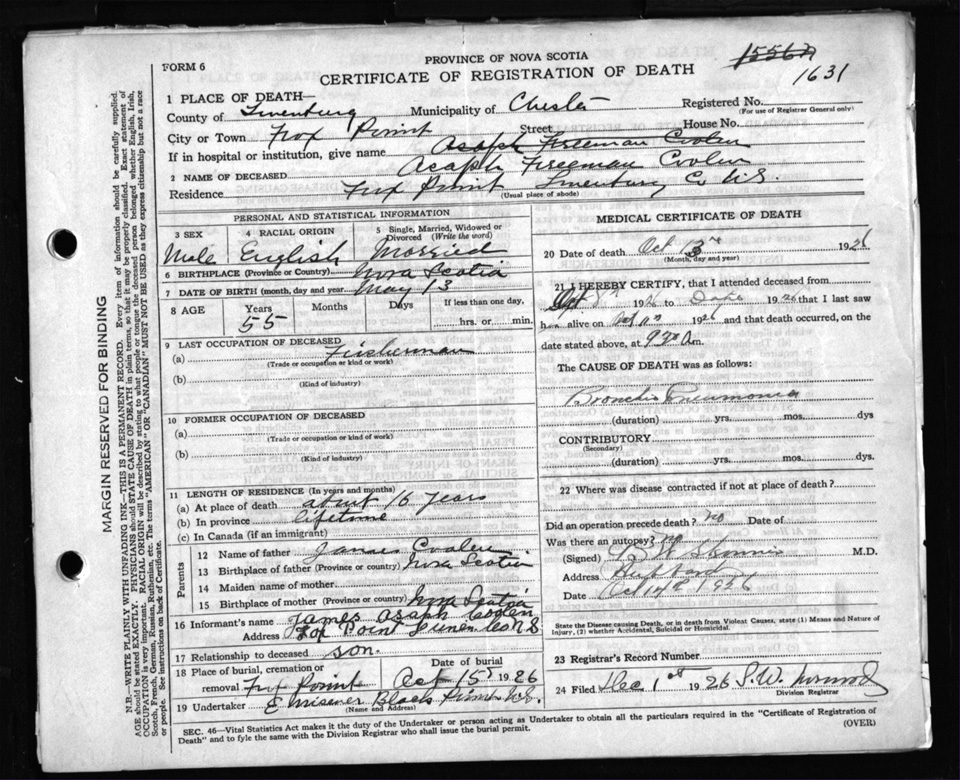 PROVINCE OF NOVA SCOTIA
FORM 6
CERTIFICATE OF REGISTRATION OF DEATH
1631
1 PLACE OF DEATH—
County of Lunenburg Municipality of Chester Registered No.
(For use of Registrar General only)
City or Town Fox Point Street House No.
If in hospital or institution, give name Asaph Freeman Coolen
2 NAME OF DECEASED Asaph Freeman Coolen
Residence Fox Point Lunenburg Co N.S.
(Usual place of abode)
PERSONAL AND STATISTICAL INFORMATION
3 SEX 4 RACIAL ORIGIN 5 Single, Married, Widowed or Divorced (Write the word)
Male English Married
6 BIRTHPLACE (Province or Country) Nova Scotia
7 DATE OF BIRTH (month, day and year) May 13
8 AGE Years Months Days If less than one day,
55 hrs. or min.
9 LAST OCCUPATION OF DECEASED
(a) Fisherman
(Trade or occupation or kind or work)
(b)
(Kind of industry)
10 FORMER OCCUPATION OF DECEASED
(a)
(Trade or occupation or kind of work)
(b)
(Kind of industry)
11 LENGTH OF RESIDENCE (In years and months)
(a) At place of death about 16 years
(b) In province lifetime
(c) In Canada (if an immigrant)
Parents
12 Name of father James Coolen
13 Birthplace of father (Province or country) Nova Scotia
14 Maiden name of mother
15 Birthplace of mother (Province or country) Nova Scotia
16 Informant's name James Asaph Coolen
Address Fox Point Lunen Co N S
17 Relationship to deceased son.
18 Place of burial, cremation or removal Fox Point
Date of burial Oct 15 1926
19 Undertaker E Misener Black Point N.S.
(Name and Address)
MEDICAL CERTIFICATE OF DEATH
20 Date of death Oct 1926
(Month, day and year)
21 I HEREBY CERTIFY, that I attended deceased
from 1926 to 1926 that I last saw
h alive on 1926 and that death occurred, on
date stated above, at m.
The CAUSE OF DEATH was as follows:
Broncho Pneumonia
(duration) yrs. mos. dys
CONTRIBUTORY
(Secondary)
(duration) yrs. mos. dys
22 Where was disease contracted if not at place of death?
Did an operation precede death? no Date of
Was there an autopsy? no
(Signed) M.D.
Address Hubbard
Date Oct 14th 1926
State the Disease causing Death, or in death from Violent Causes, state (1) Means and Nature of
Injury, (2) whether Accidental, Suicidal or Homicidal.
23 Registrar's Record Number
24 Filed Dec 1st 1926 S.W.
Division Registrar
SEC. 46—Vital Statistics Act makes it the duty of the Undertaker or person acting as Undertaker to obtain all the particulars required in the "Certificate of Registration of
Death" and to fyle the same with the Division Registrar who shall issue the burial permit. (OVER)
MARGIN RESERVED FOR BINDING
N.B. WRITE PLAINLY WITH UNFADING INK—THIS IS A PERMANENT RECORD. Every item of information should be carefully supplied.
AGE should be stated EXACTLY. PHYSICIANS should STATE CAUSE OF DEATH in plain terms, so that it may be properly classified. Exact statement of
OCCUPATION is very important. RACIAL ORIGIN will be described by stating to what people or tongue the deceased person belonged whether English, Irish,
Scotch, French, German, Russian, Ruthenian, etc. The terms "AMERICAN" OR "CANADIAN" MUST NOT BE USED as they express citizenship but not a race
or people. See instructions on back of Certificate.